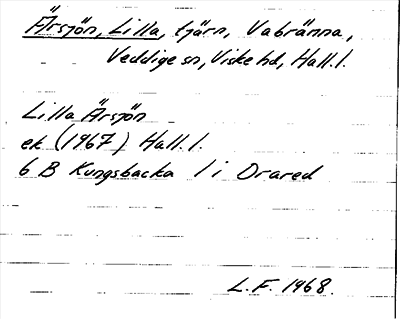 Ärsjön, Lilla, tjärn, Vabränna,
Veddige sn, Viske hd, Hall. l.
Lilla Ärsjön
ek (1967) Hall. l.
6 B Kungsbacka 1 i Orared
L.F. 1968.